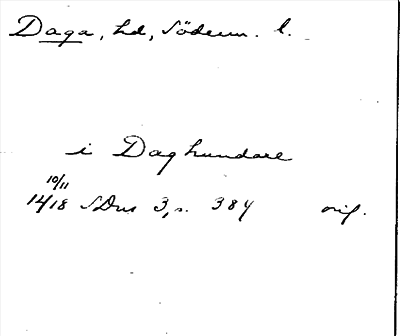 Daga, hd, Söderm. l.
i Daghundare
10/11
1418 SDns 3, s. 384 orig.